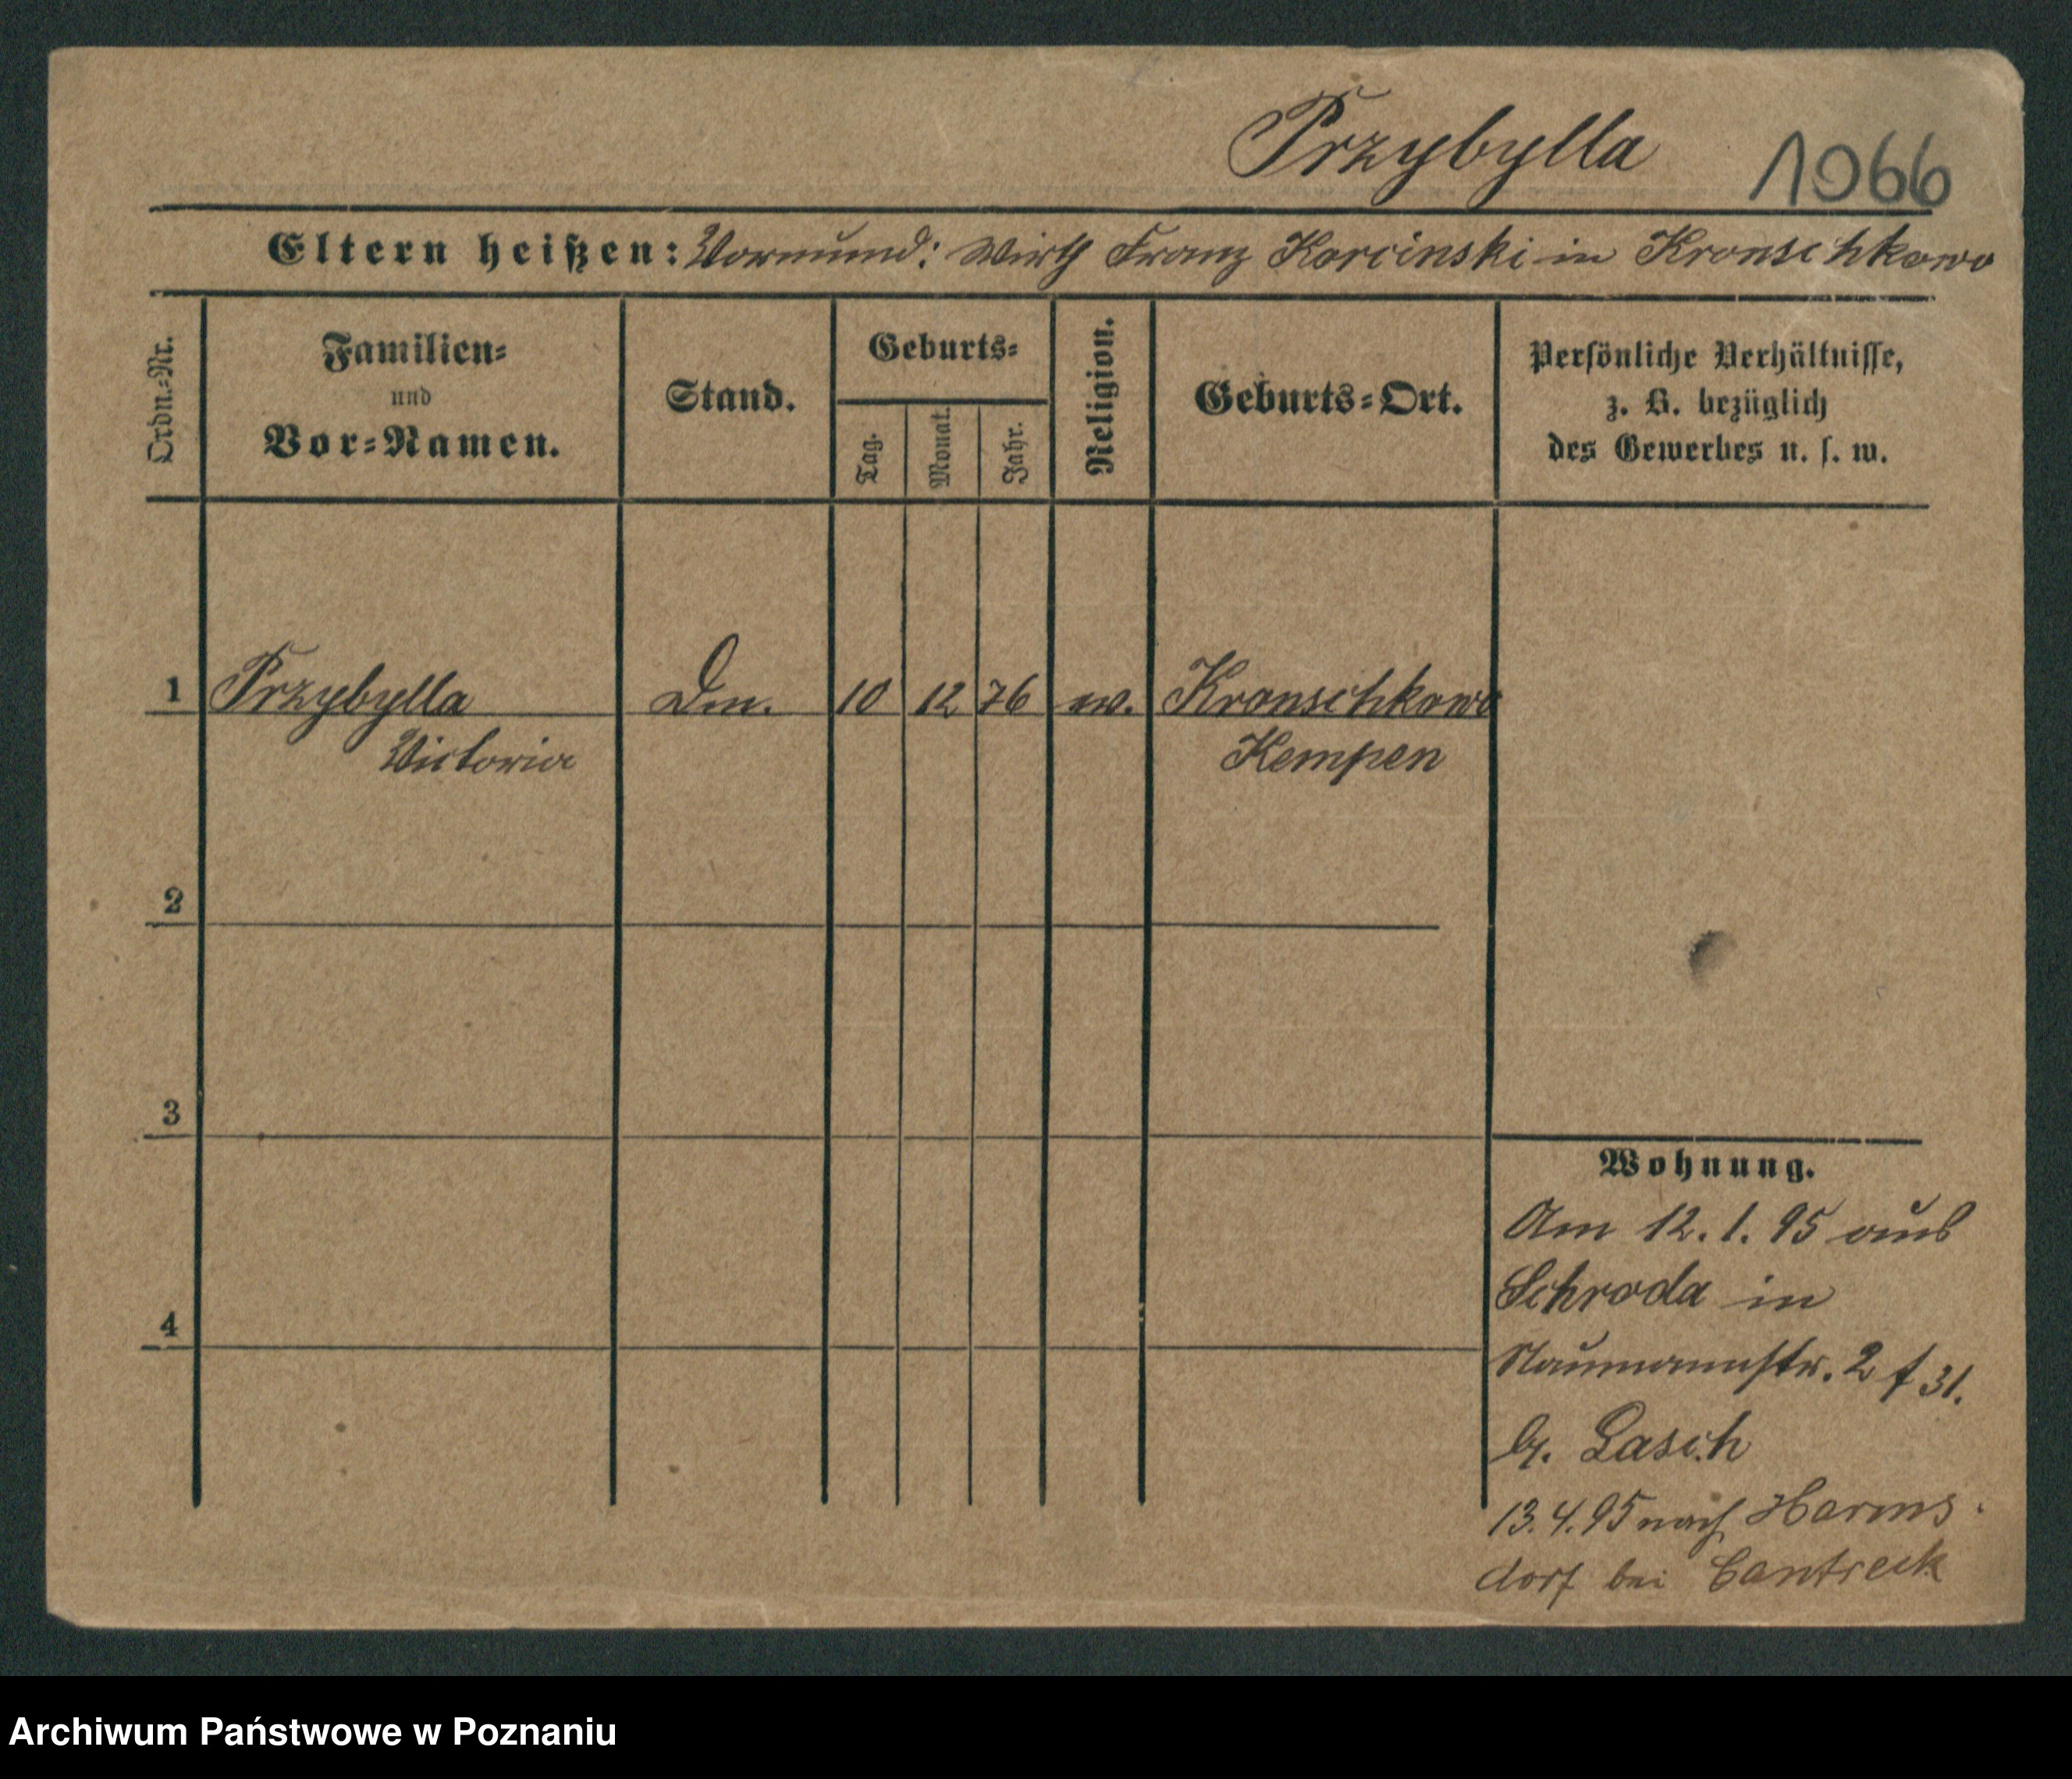 Przybylla 1066
Eltern heißen: Vormund: Wirth Franz Korcinski in Kronschkowo
Ordn.=Nr.
Familien=
und
Vor=Namen.
Stand.
Geburts=
Tag.
Monat.
Jahr.
Religion.
Geburts=Ort.
Persönliche Verhältnisse,
z. B. bezüglich
des Gewerbes u. s. w.
1 Przybylla Dm. 10 12 76 ev. Kronschkowo
Victoria Kempen
2
3
4
Wohnung.
Am 12.1.95 aus
Schroda in
Naumannstr. 2 f 31.
b. Lasch
13.4.95 nach Harms-
dorf bei Cantreck
Archiwum Państwowe w Poznaniu